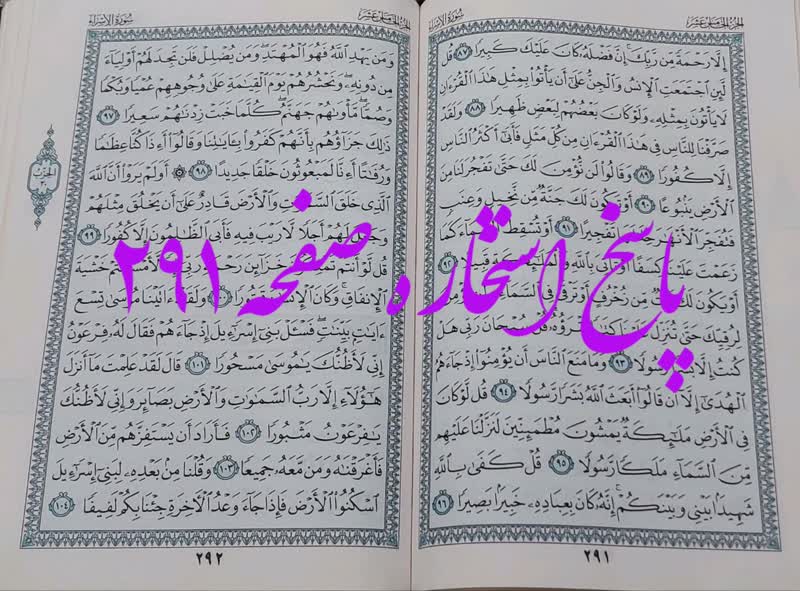 سُورَةُ الْإِسْرَاءِ
إِلَّا رَحْمَةً مِّن رَّبِّكَ ۚ إِنَّ فَضْلَهُ كَانَ عَلَيْكَ كَبِيرًا ٨٧ قُل
لَّئِنِ اجْتَمَعَتِ الْإِنسُ وَالْجِنُّ عَلَىٰ أَن يَأْتُوا بِمِثْلِ هَٰذَا الْقُرْءَانِ
لَا يَأْتُونَ بِمِثْلِهِ وَلَوْ كَانَ بَعْضُهُمْ لِبَعْضٍ ظَهِيرًا ٨٨ وَلَقَدْ
صَرَّفْنَا لِلنَّاسِ فِي هَٰذَا الْقُرْءَانِ مِن كُلِّ مَثَلٍ فَأَبَىٰ أَكْثَرُ النَّاسِ
إِلَّا كُفُورًا ٨٩ وَقَالُوا لَن نُّؤْمِنَ لَكَ حَتَّىٰ تَفْجُرَ لَنَا مِنَ
الْأَرْضِ يَنبُوعًا ٩٠ أَوْ تَكُونَ لَكَ جَنَّةٌ مِّن نَّخِيلٍ وَعِنَبٍ
فَتُفَجِّرَ الْأَنْهَارَ خِلَالَهَا تَفْجِيرًا ٩١ أَوْ تُسْقِطَ السَّمَاءَ كَمَا
زَعَمْتَ عَلَيْنَا كِسَفًا أَوْ تَأْتِيَ بِاللَّهِ وَالْمَلَائِكَةِ قَبِيلًا ٩٢
أَوْ يَكُونَ لَكَ بَيْتٌ مِّن زُخْرُفٍ أَوْ تَرْقَىٰ فِي السَّمَاءِ وَلَن نُّؤْمِنَ
لِرُقِيِّكَ حَتَّىٰ تُنَزِّلَ عَلَيْنَا كِتَابًا نَّقْرَؤُهُ ۗ قُلْ سُبْحَانَ رَبِّي هَلْ
كُنتُ إِلَّا بَشَرًا رَّسُولًا ٩٣ وَمَا مَنَعَ النَّاسَ أَن يُؤْمِنُوا إِذْ جَاءَهُمُ
الْهُدَىٰ إِلَّا أَن قَالُوا أَبَعَثَ اللَّهُ بَشَرًا رَّسُولًا ٩٤ قُل لَّوْ كَانَ
فِي الْأَرْضِ مَلَائِكَةٌ يَمْشُونَ مُطْمَئِنِّينَ لَنَزَّلْنَا عَلَيْهِم
مِّنَ السَّمَاءِ مَلَكًا رَّسُولًا ٩٥ قُلْ كَفَىٰ بِاللَّهِ
شَهِيدًا بَيْنِي وَبَيْنَكُمْ ۚ إِنَّهُ كَانَ بِعِبَادِهِ خَبِيرًا بَصِيرًا ٩٦
٢٩١
سُورَةُ الْإِسْرَاءِ
وَمَن يَهْدِ اللَّهُ فَهُوَ الْمُهْتَدِ ۖ وَمَن يُضْلِلْ فَلَن تَجِدَ لَهُمْ أَوْلِيَاءَ
مِن دُونِهِ ۖ وَنَحْشُرُهُمْ يَوْمَ الْقِيَامَةِ عَلَىٰ وُجُوهِهِمْ عُمْيًا وَبُكْمًا
وَصُمًّا ۖ مَّأْوَاهُمْ جَهَنَّمُ ۖ كُلَّمَا خَبَتْ زِدْنَاهُمْ سَعِيرًا ٩٧
ذَٰلِكَ جَزَاؤُهُم بِأَنَّهُمْ كَفَرُوا بِآيَاتِنَا وَقَالُوا أَءِذَا كُنَّا عِظَامًا
وَرُفَاتًا أَءِنَّا لَمَبْعُوثُونَ خَلْقًا جَدِيدًا ٩٨ ۞ أَوَلَمْ يَرَوْا أَنَّ اللَّهَ
الَّذِي خَلَقَ السَّمَاوَاتِ وَالْأَرْضَ قَادِرٌ عَلَىٰ أَن يَخْلُقَ مِثْلَهُمْ
وَجَعَلَ لَهُمْ أَجَلًا لَّا رَيْبَ فِيهِ فَأَبَى الظَّالِمُونَ إِلَّا كُفُورًا ٩٩
قُل لَّوْ أَنتُمْ تَمْلِكُونَ خَزَائِنَ رَحْمَةِ رَبِّي إِذًا لَّأَمْسَكْتُمْ خَشْيَةَ
الْإِنفَاقِ ۚ وَكَانَ الْإِنسَانُ قَتُورًا ١٠٠ وَلَقَدْ آتَيْنَا مُوسَىٰ تِسْعَ
ءَايَاتٍ بَيِّنَاتٍ ۖ فَسْـَٔلْ بَنِي إِسْرَائِيلَ إِذْ جَاءَهُمْ فَقَالَ لَهُ فِرْعَوْنُ
إِنِّي لَأَظُنُّكَ يَا مُوسَىٰ مَسْحُورًا ١٠١ قَالَ لَقَدْ عَلِمْتَ مَا أَنزَلَ
هَٰؤُلَاءِ إِلَّا رَبُّ السَّمَاوَاتِ وَالْأَرْضِ بَصَائِرَ وَإِنِّي لَأَظُنُّكَ
يَا فِرْعَوْنُ مَثْبُورًا ١٠٢ فَأَرَادَ أَن يَسْتَفِزَّهُم مِّنَ الْأَرْضِ
فَأَغْرَقْنَاهُ وَمَن مَّعَهُ جَمِيعًا ١٠٣ وَقُلْنَا مِن بَعْدِهِ لِبَنِي إِسْرَائِيلَ
اسْكُنُوا الْأَرْضَ فَإِذَا جَاءَ وَعْدُ الْآخِرَةِ جِئْنَا بِكُمْ لَفِيفًا ١٠٤
٢٩٢
پاسخ استخاره صفحه ۲۹۱